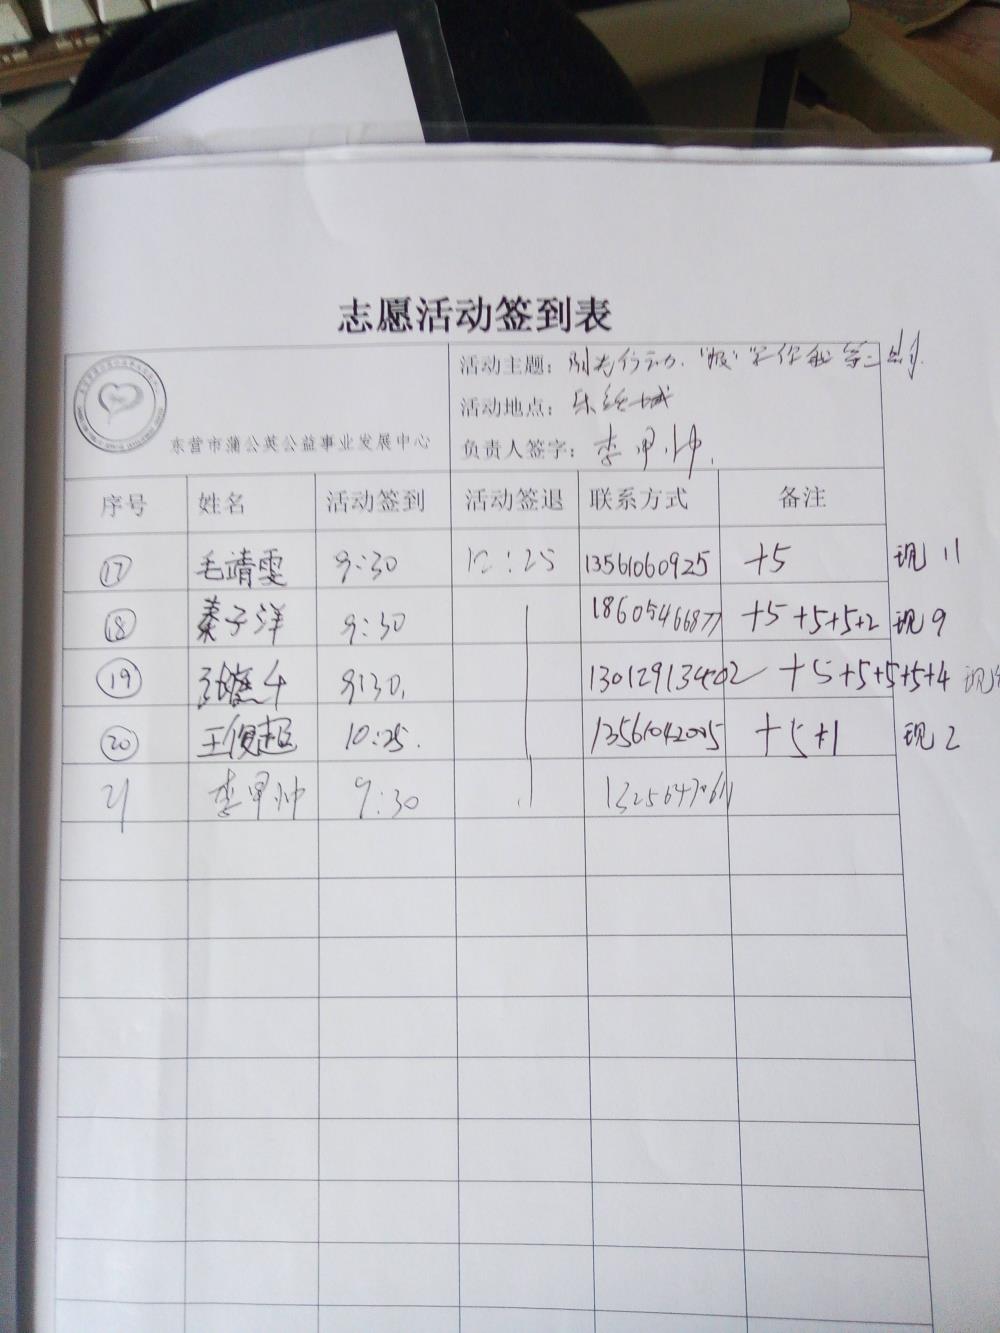 志愿活动签到表
活动主题：
活动地点：
东营市蒲公英公益事业发展中心
负责人签字：李甲帅
序号 姓名 活动签到 活动签退 联系方式 备注
⑰ 毛靖雯 9:30 12:25 13561060925 +5 现 11
⑱ 秦子洋 9:30 18605466877 +5 +5+5+2 现 9
⑲ 9:30 13012913402 +5+5+5+5+4 现
⑳ 王俊超 10:25 +5+1 现 2
21 李甲帅 9:30